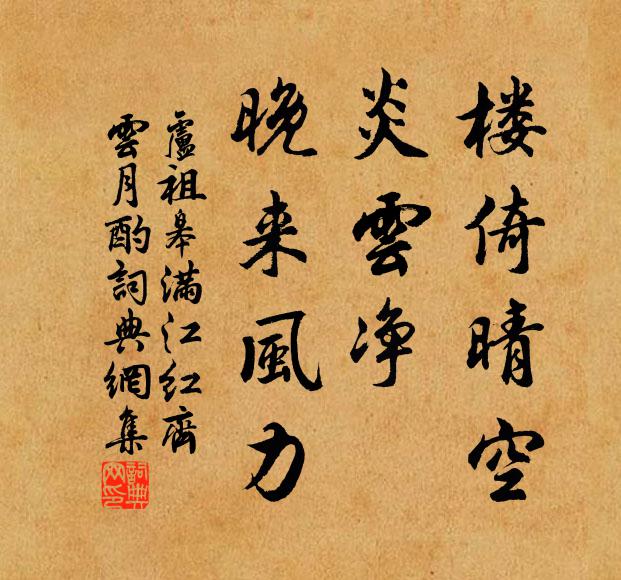 楼倚晴空
炎雲净
晚来風力
盧祖皋满江红齊
雲月酌詞典網集
詞典网印